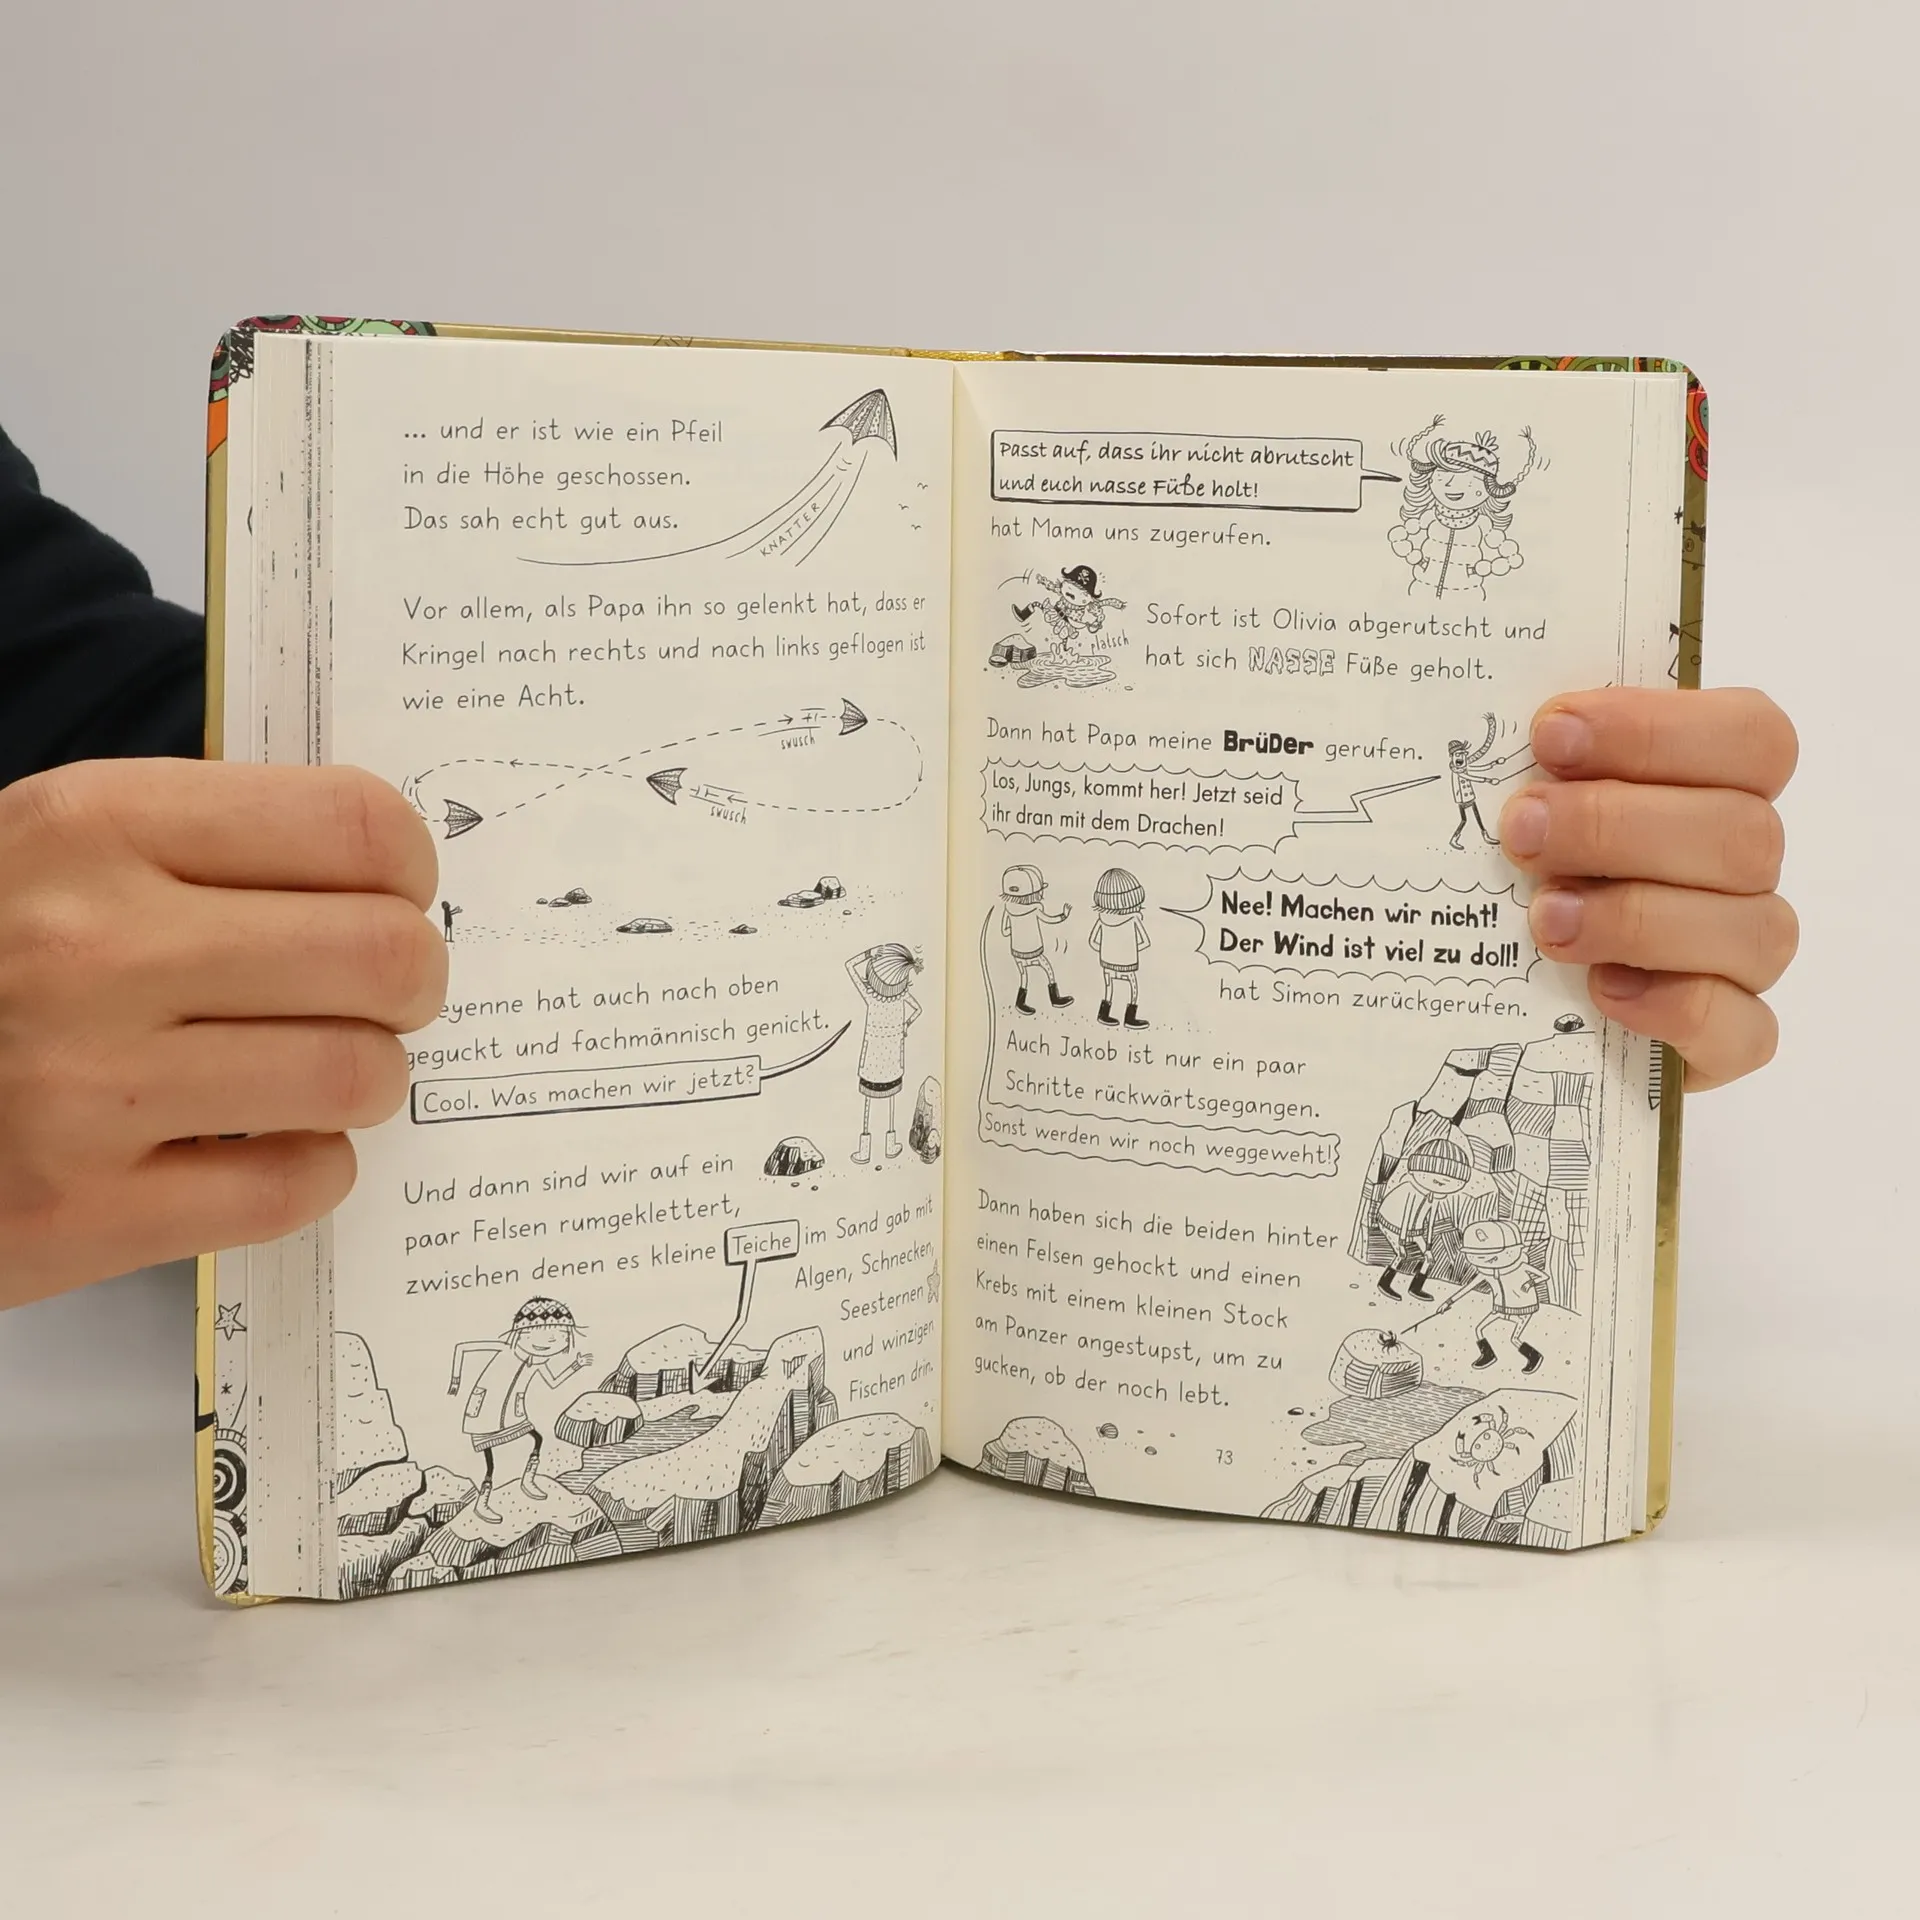 ... und er ist wie ein Pfeil
in die Höhe geschossen.
Das sah echt gut aus.
KNATTER
Vor allem, als Papa ihn so gelenkt hat, dass er
Kringel nach rechts und nach links geflogen ist
wie eine Acht.
swusch
swusch
hat auch nach oben
geguckt und fachmännisch genickt.
Cool. Was machen wir jetzt?
Und dann sind wir auf ein
paar Felsen rumgeklettert,
zwischen denen es kleine Teiche im Sand gab mit
Algen, Schnecken,
Seesternen
und winzigen
Fischen drin.
Passt auf, dass ihr nicht abrutscht
und euch nasse Füße holt!
hat Mama uns zugerufen.
platsch
Sofort ist Olivia abgerutscht und
hat sich NASSE Füße geholt.
Dann hat Papa meine BRÜDER gerufen.
Los, Jungs, kommt her! Jetzt seid
ihr dran mit dem Drachen!
Nee! Machen wir nicht!
Der Wind ist viel zu doll!
hat Simon zurückgerufen.
Auch Jakob ist nur ein paar
Schritte rückwärtsgegangen.
Sonst werden wir noch weggeweht!
Dann haben sich die beiden hinter
einen Felsen gehockt und einen
Krebs mit einem kleinen Stock
am Panzer angestupst, um zu
gucken, ob der noch lebt.
73